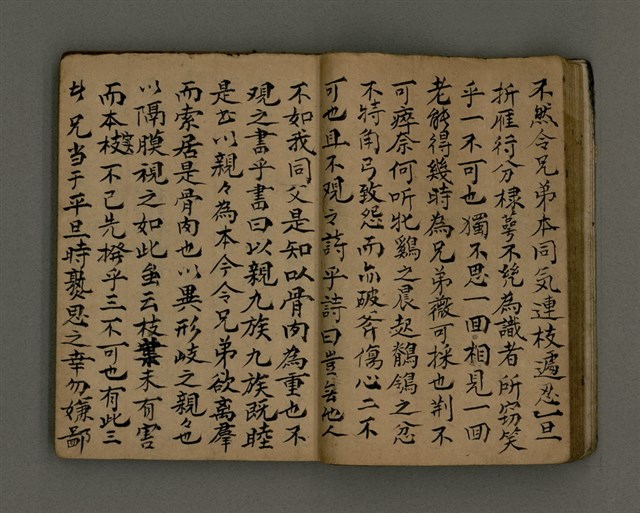 不然令兄弟本同気連枝遽忍一旦
折雁行分棣萼不免為識者所窃笑
乎一不可也獨不思一回相見一回
老能得幾時為兄弟薇可採也荆不
可瘁奈何听牝鷄之晨起鶺鴒之忿
不特角弓致怨而亦破斧傷心二不
可也且不观之詩乎詩曰豈無他人
不如我同父是知以骨肉為重也不
观之書乎書曰以親九族九族既睦
是書以親々為本今令兄弟欲离羣
而索居是骨肉也以異形歧之親々也
以隔膜視之如此虽云枝葉未有害
而本枝實不已先撥乎三不可也有此三
兄当于平旦時熟思之幸勿嫌鄙